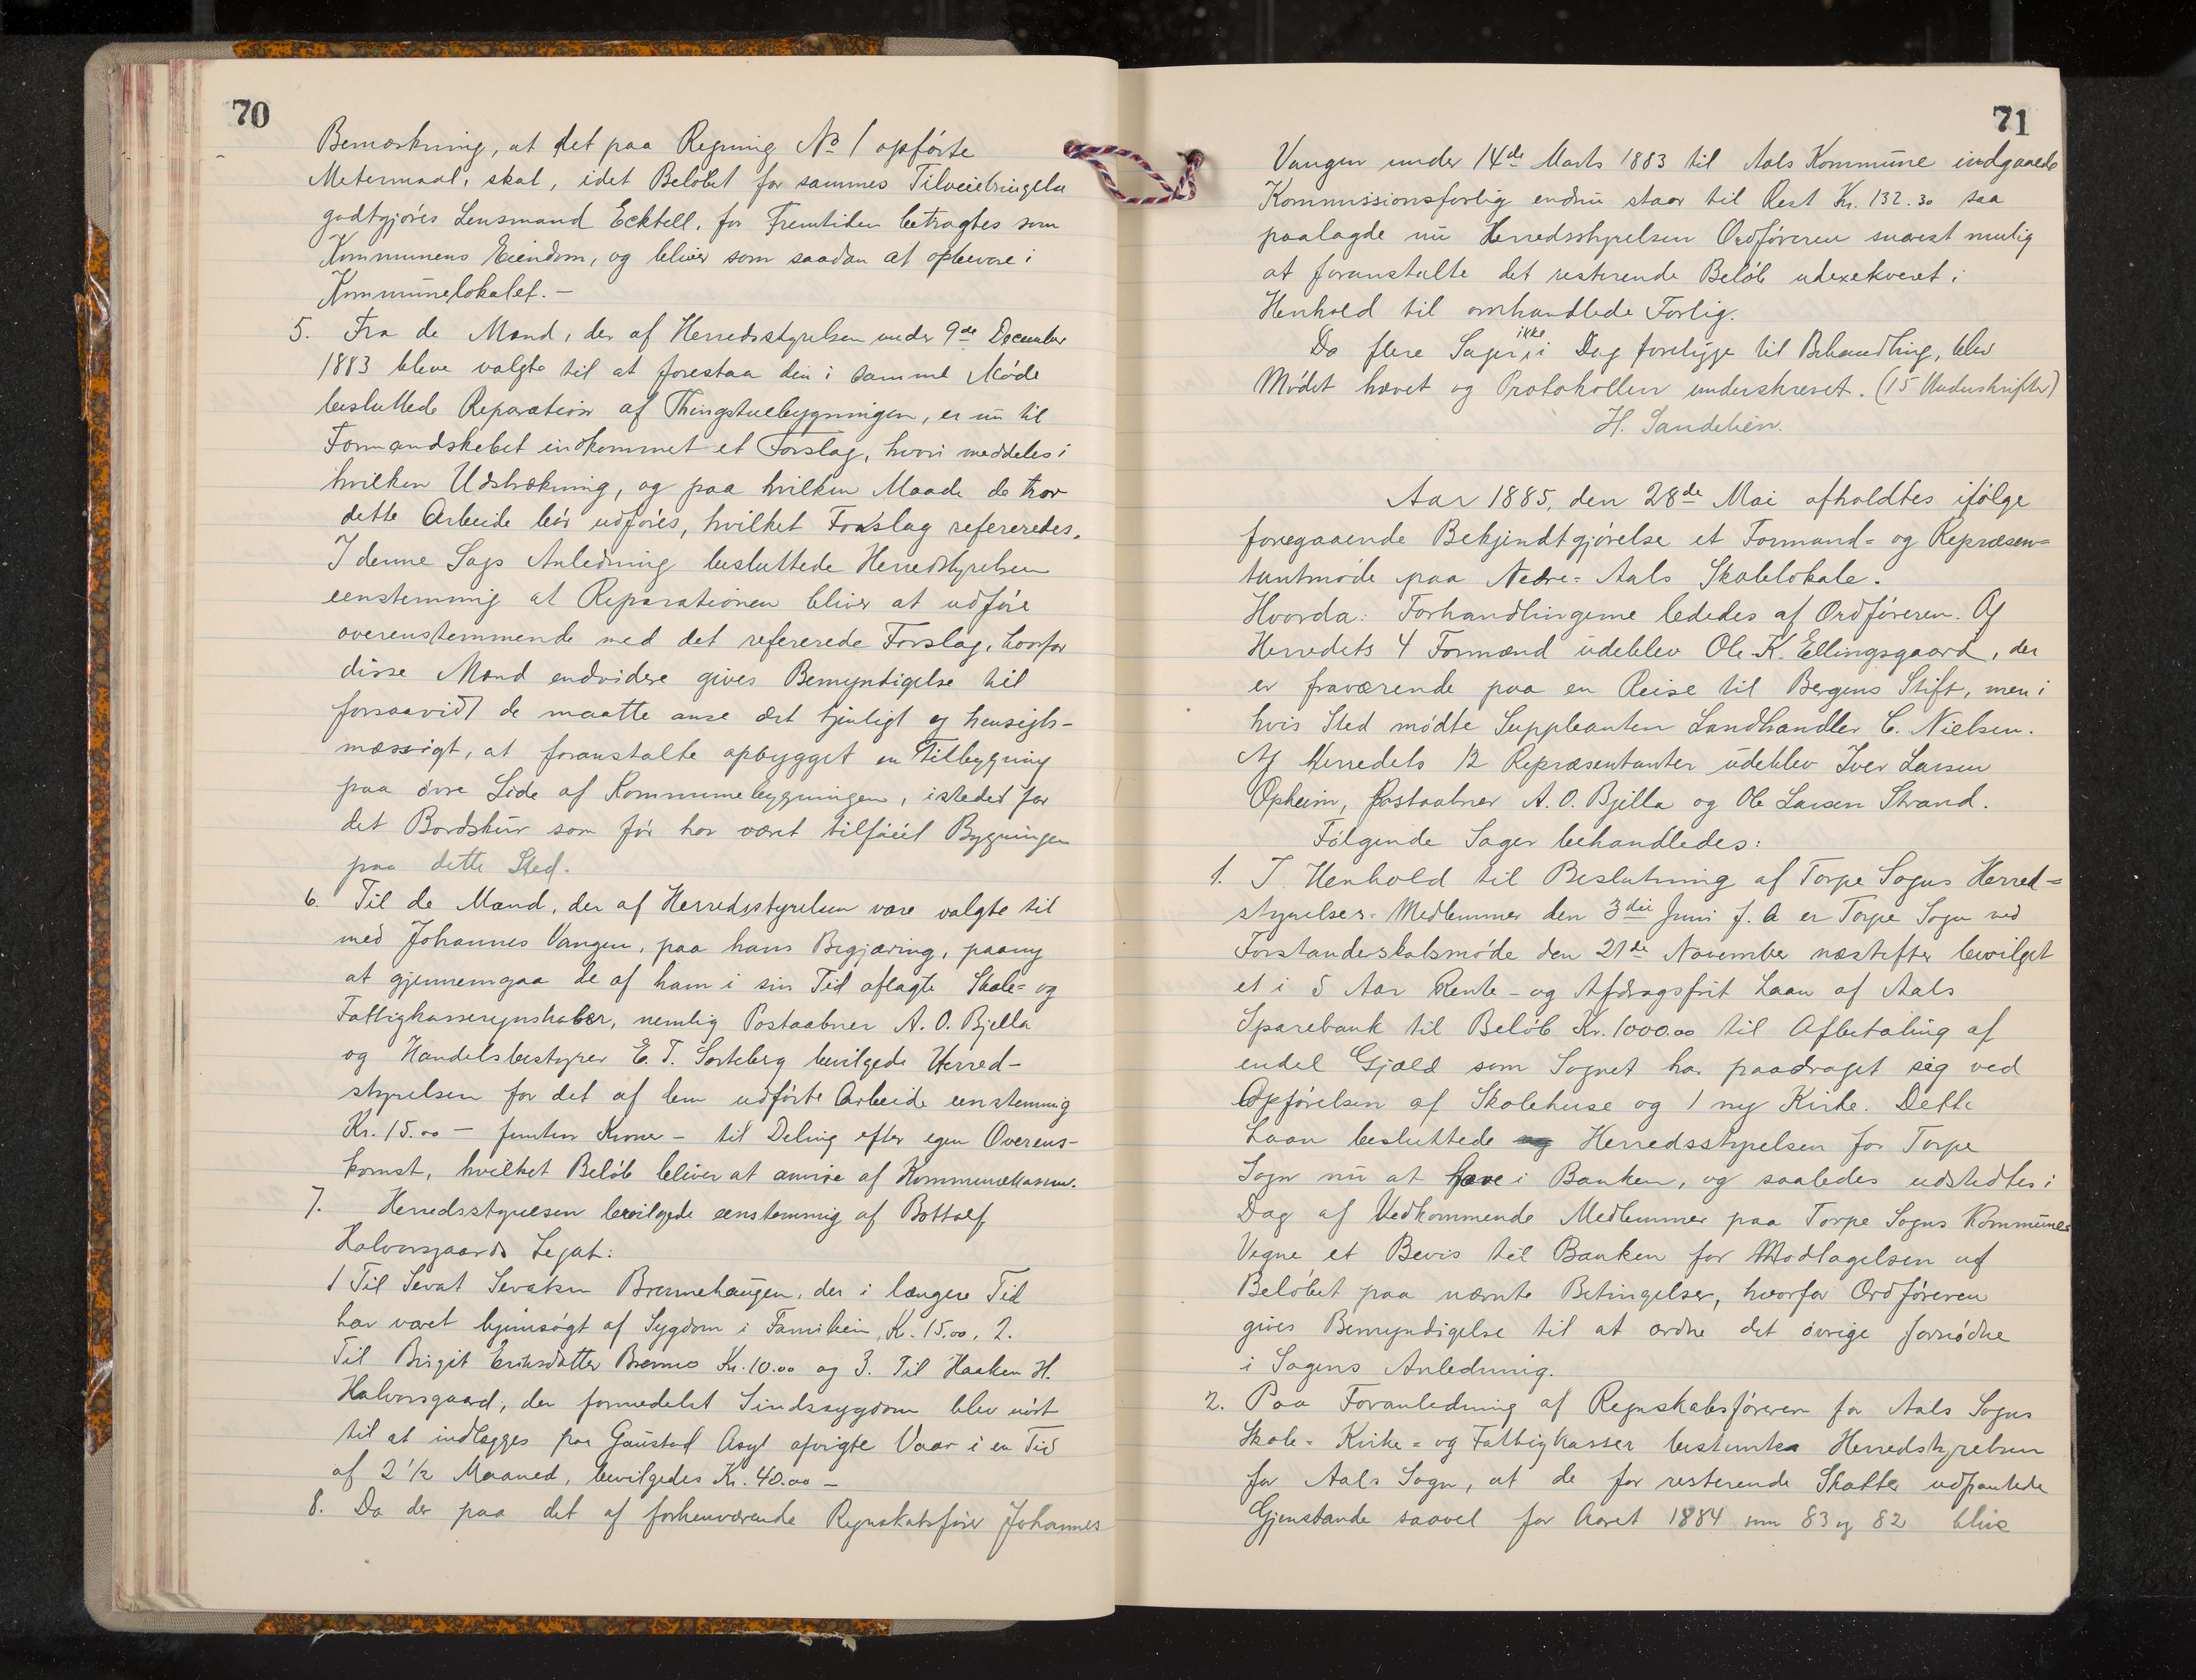 70
Bemærkning, at det paa Regning No 1 opførte
Metermaal, skal, idet Beløbet for sammes Tilveiebringelse
godtgjøres Lensmand Ecktell, for Fremtiden betragtes som
Kommunens Eiendom, og bliver som saadan at opbevare i
Kommunelokalet. —
5. Fra de Mænd, der af Herredsstyrelsen under 9de December
1883 bleve valgte til at forestaa den i samme Møde
besluttede Reparation af Thingstuebygningen, er nu til
Formandskabet indkommet et Forslag, hvori meddeles i
hvilken Udstrækning, og paa hvilken Maade de tror
dette Arbeide bør udføres, hvilket Forslag refereredes.
I denne Sags Anledning besluttede Herredstyrelsen
eenstemmig at Reparationen bliver at udføre
overenstemmende med det refererede Forslag, hvorfor
disse Mænd endvidere gives Bemyndigelse til
forsaavidt de maatte anse det tjenligt og hensigts-
mæssigt, at foranstalte opbygget en Tilbygning
paa øvre Side af Kommunebygningen, istedet for
det Bordskur som før har været tilføiet Bygningen
paa dette Sted.
6. Til de Mænd, der af Herredsstyrelsen vare valgte til
med Johannes Vangen, paa hans Begjæring, paany
at gjennemgaa de af ham i sin Tid aflagte Skole= og
Fattigkasseregnskaber, nemlig Postaabner A. O. Bjella
og Handelsbestyrer E. T. Sorteberg bevilgede Herred-
styrelsen for det af dem udførte Arbeide eenstemmig
Kr. 15.00 — femten Kroner — til Deling efter egen Overens-
komst, hvilket Beløb bliver at anvise af Kommunekassen.
7. Herredsstyrelsen bevilgede eenstemmig af Bottolf
Halvorsgaards Legat:
1 Til Sevat Sevatsen Brennehaugen, der i længere Tid
har været hjemsøgt af Sygdom i Familien, Kr. 15.00, 2.
Til Birgit Eriksdatter Brenno Kr. 10.00 og 3. Til Haaken H.
Halvorsgaard, der formedelst Sindssygdom blev nødt
til at indlægges paa Gaustad Asyl afvigte Vaar i en Tid
af 2 1/2 Maaned, bevilgedes Kr. 40.00 —
8. Da der paa det af forhenværende Regnskabsfører Johannes
71
Vangen under 14de Marts 1883 til Aals Kommune indgaaede
Kommissionsforlig endnu staar til Rest Kr. 132.30 saa
paalagde nu Herredsstyrelsen Ordføreren snarest mulig
at foranstalte det resterende Beløb udexekveret i
Henhold til omhandlede Forlig.
Da flere Sager ikke i Dag foreligge til Behandling, blev
Mødet hævet og Protokollen underskrevet. (15 Underskrifter)
H. Sandelien.
Aar 1885, den 28de Mai afholdtes ifølge
foregaaende Bekjendtgjørelse et Formand= og Repræsen=
tantmøde paa Nedre=Aals Skolelokale.
Hvorda: Forhandlingerne lededes af Ordføreren. Af
Herredets 4 Formænd udeblev Ole K. Ellingsgaard, der
er fraværende paa en Reise til Bergens Stift, men i
hvis Sted mødte Suppleanten Landhandler C. Nielsen.
Af Herredets 12 Repræsentanter udeblev Iver Larsen
Opheim, Postaabner A. O. Bjella og Ole Larsen Strand.
Følgende Sager behandledes:
1. I Henhold til Beslutning af Torpe Sogns Herred=
styrelses=Medlemmer den 3die Juni f. A er Torpe Sogn ved
Forstanderskabsmøde den 21de November næstefter bevilget
et i 5 Aar Rente- og Afdragsfrit Laan af Aals
Sparebank til Beløb Kr. 1000.00 til Afbetaling af
endel Gjæld som Sognet har paadraget sig ved
Opførelsen af Skolehuse og 1 ny Kirke. Dette
Laan besluttede Herredsstyrelsen for Torpe
Sogn nu at hæve i Banken, og saaledes udstedtes i
Dag af Vedkommende Medlemmer paa Torpe Sogns Kommunes
Vegne et Bevis til Banken for Modtagelsen af
Beløbet paa nævnte Betingelser, hvorfor Ordføreren
gives Bemyndigelse til at ordne det øvrige fornødne
i Sagens Anledning.
2. Paa Foranledning af Regnskabsføreren for Aals Sogns
Skole= Kirke= og Fattigkasser bestemte Herredstyrelsen
for Aals Sogn, at de for resterende Skatter udpantede
Gjenstande saavel for Aaret 1884 som 83 og 82 blive